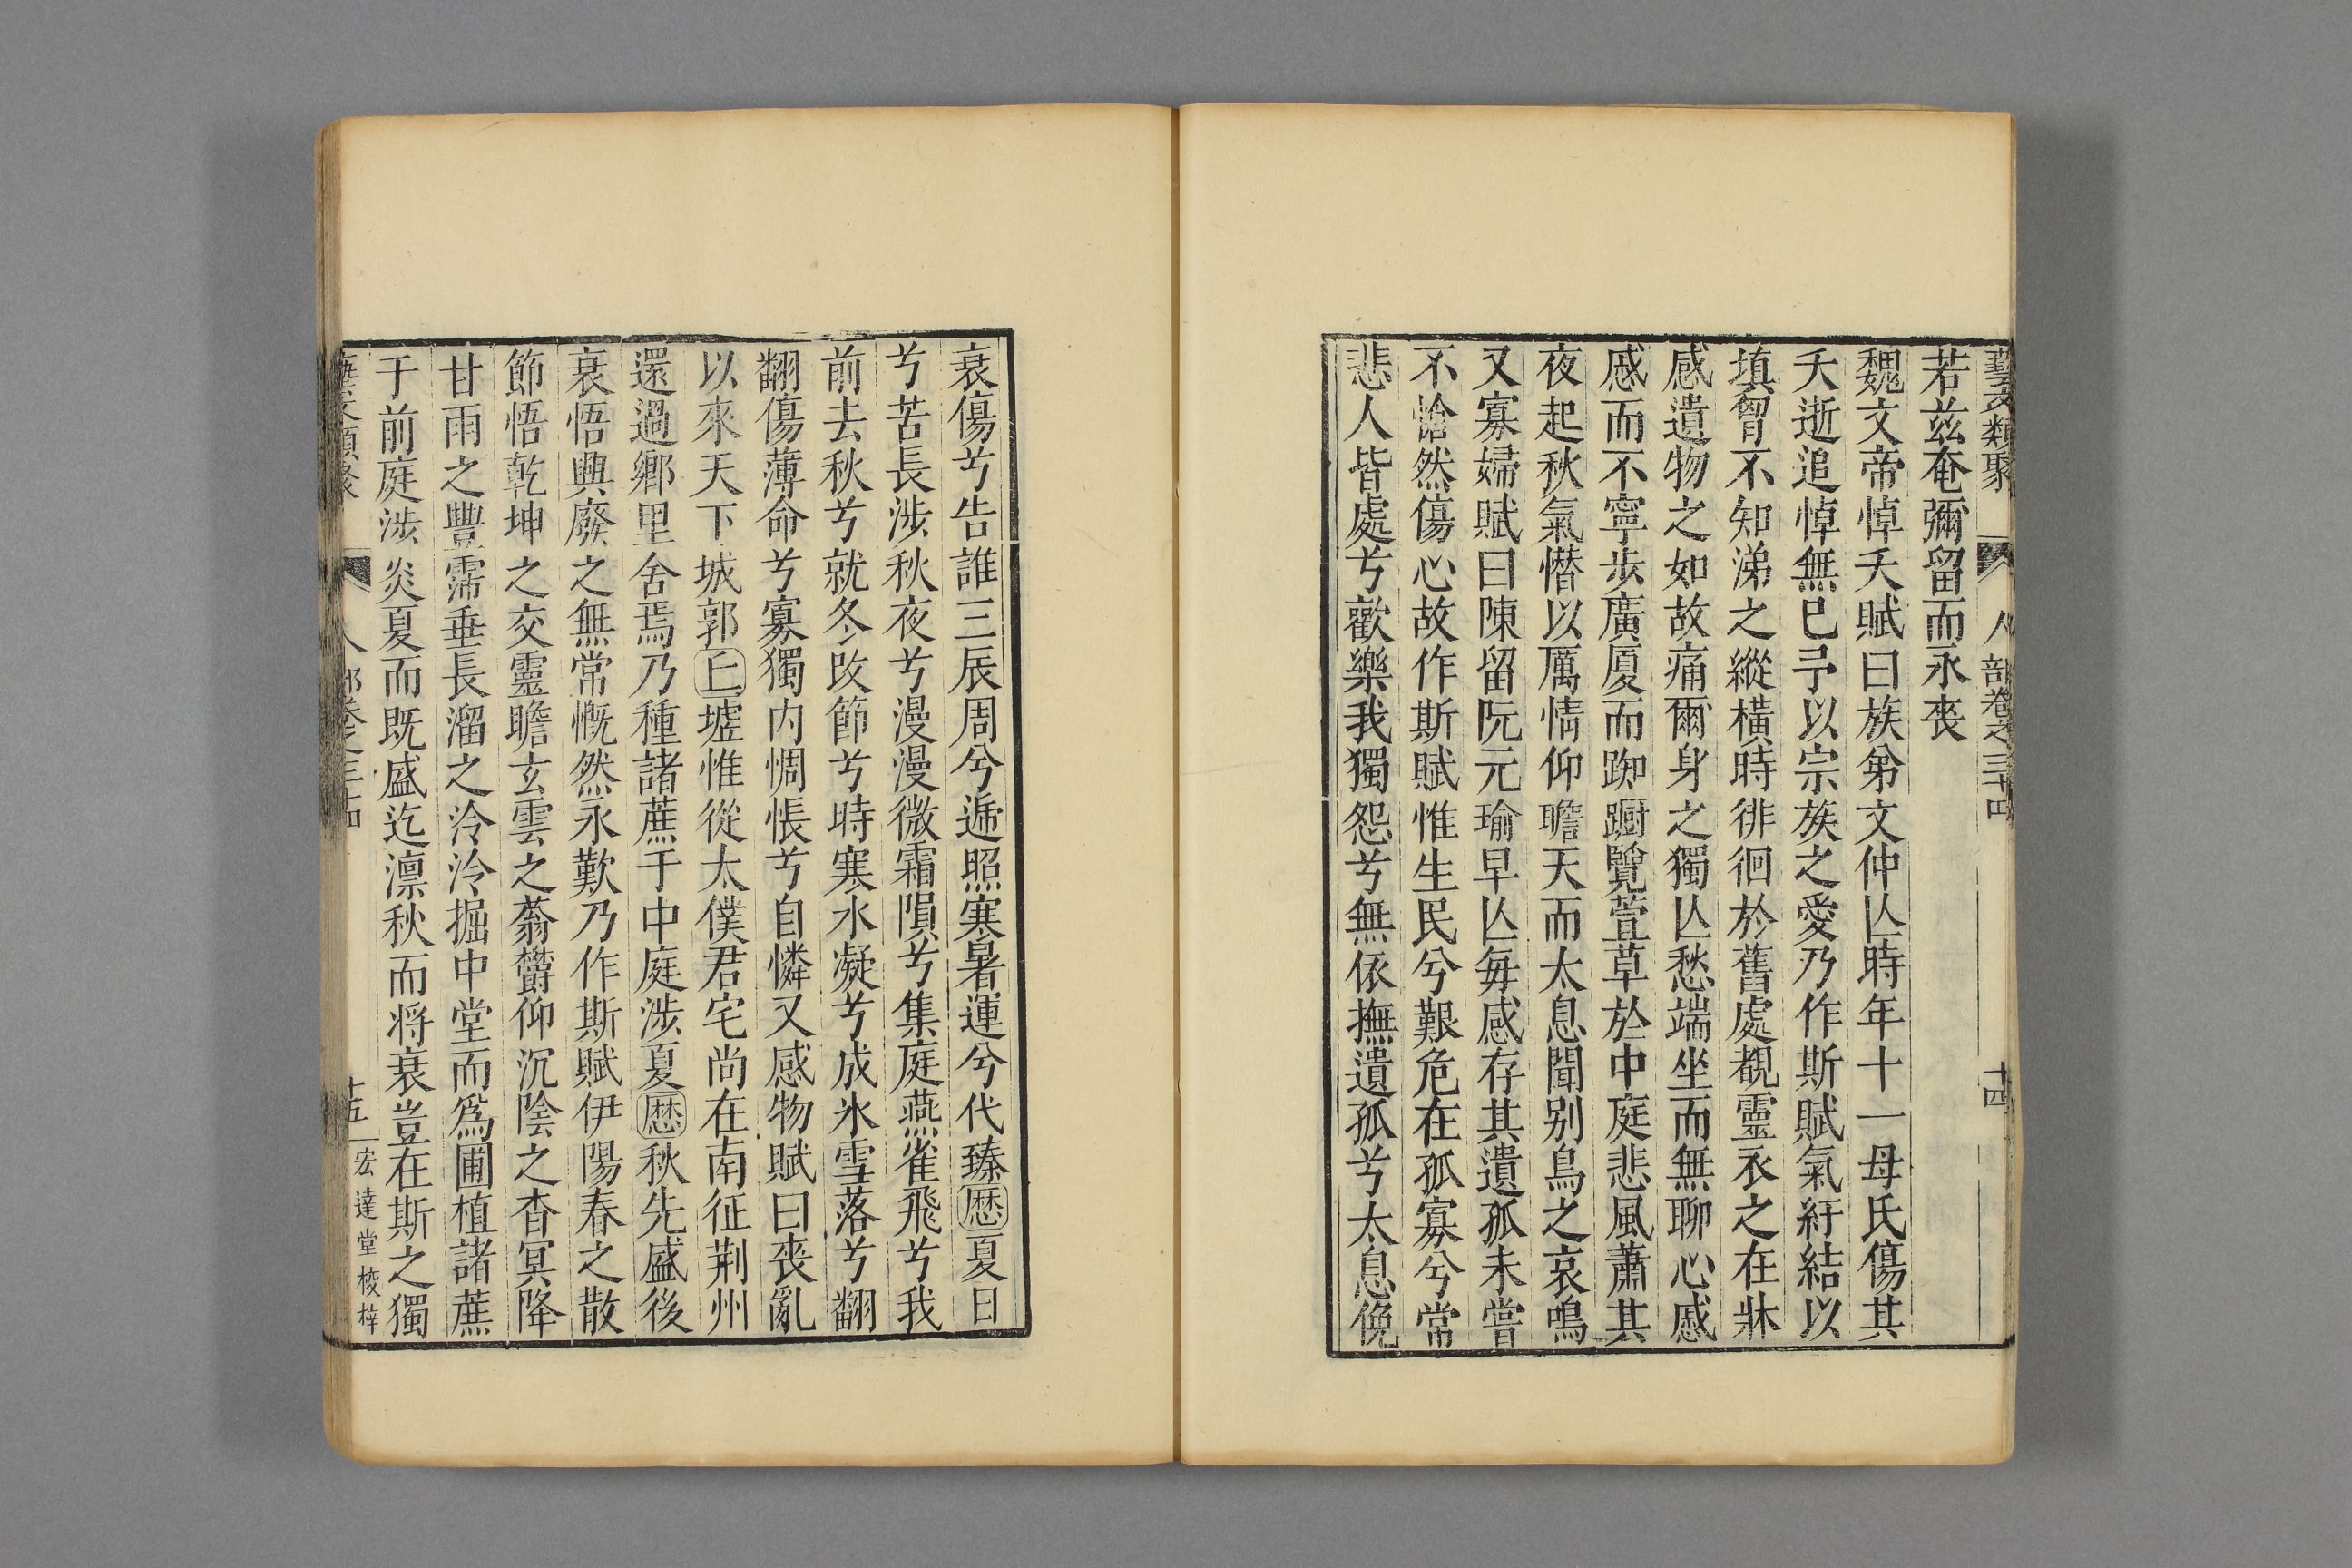 藝文類聚 人部卷之三十四 十四
若茲奄彌留而永喪
魏文帝悼夭賦曰族弟文仲亾時年十一母氏傷其
夭逝追悼無已予以宗族之愛乃作斯賦氣紆結以
填胷不知涕之縱橫時徘徊於舊處覩靈衣之在牀
感遺物之如故痛爾身之獨亾愁端坐而無聊心慼
慼而不寧步廣厦而踟躕覽萱草於中庭悲風蕭其
夜起秋氣憯以厲情仰瞻天而太息聞别鳥之哀鳴
又寡婦賦曰陳留阮元瑜早亾每感存其遺孤未嘗
不愴然傷心故作斯賦惟生民兮艱危在孤寡兮常
悲人皆處兮歡樂我獨怨兮無依撫遺孤兮太息俛
哀傷兮告誰三辰周兮遞照寒暑運兮代臻歷夏日
兮苦長涉秋夜兮漫漫微霜隕兮集庭燕雀飛兮我
前去秋兮就冬改節兮時寒水凝兮成冰雪落兮翻
翻傷薄命兮寡獨内惆悵兮自憐又感物賦曰喪亂
以來天下城郭丘墟惟從太僕君宅尚在南征荆州
還過鄉里舍焉乃種諸蔗于中庭涉夏歷秋先盛後
衰悟興廢之無常慨然永歎乃作斯賦伊陽春之散
節悟乾坤之交靈瞻玄雲之蓊欝仰沉陰之杳冥降
甘雨之豐霈垂長溜之泠泠掘中堂而爲圃植諸蔗
于前庭涉炎夏而既盛迄凛秋而将衰豈在斯之獨
藝文類聚 人部卷之三十四 十五 宏達堂校梓